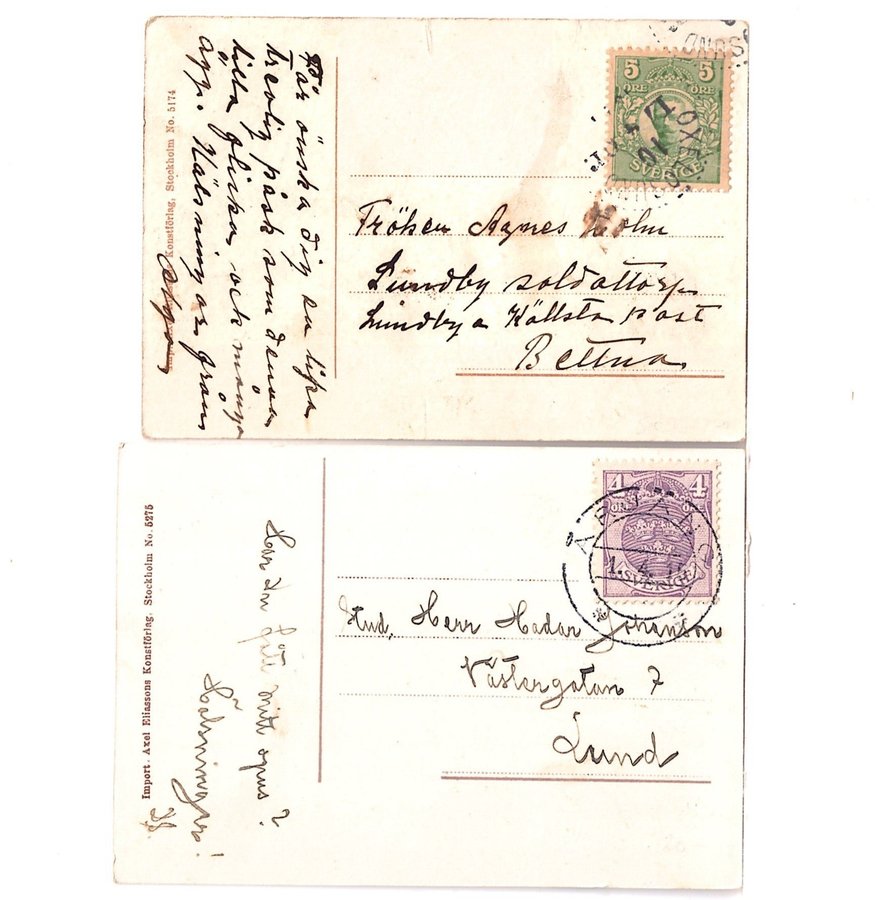 Får önska dig en liten
trevlig påsk som denna
lilla flicka och många
ägg. Hälsningar från
Olga
Konstförlag, Stockholm No. 5174
5 5
ÖRE ÖRE
SVERIGE
OXELÖSUND
Fröken Agnes Holm
Lundby soldattorp
Lundby a Källsta post
Bettna
Import. Axel Eliassons Konstförlag, Stockholm No. 5275
Har du fått mitt opus?
Hälsningar!
4 4
SVERIGE
Stud. Herr Hadar Johanson
Västergatan 7
Lund